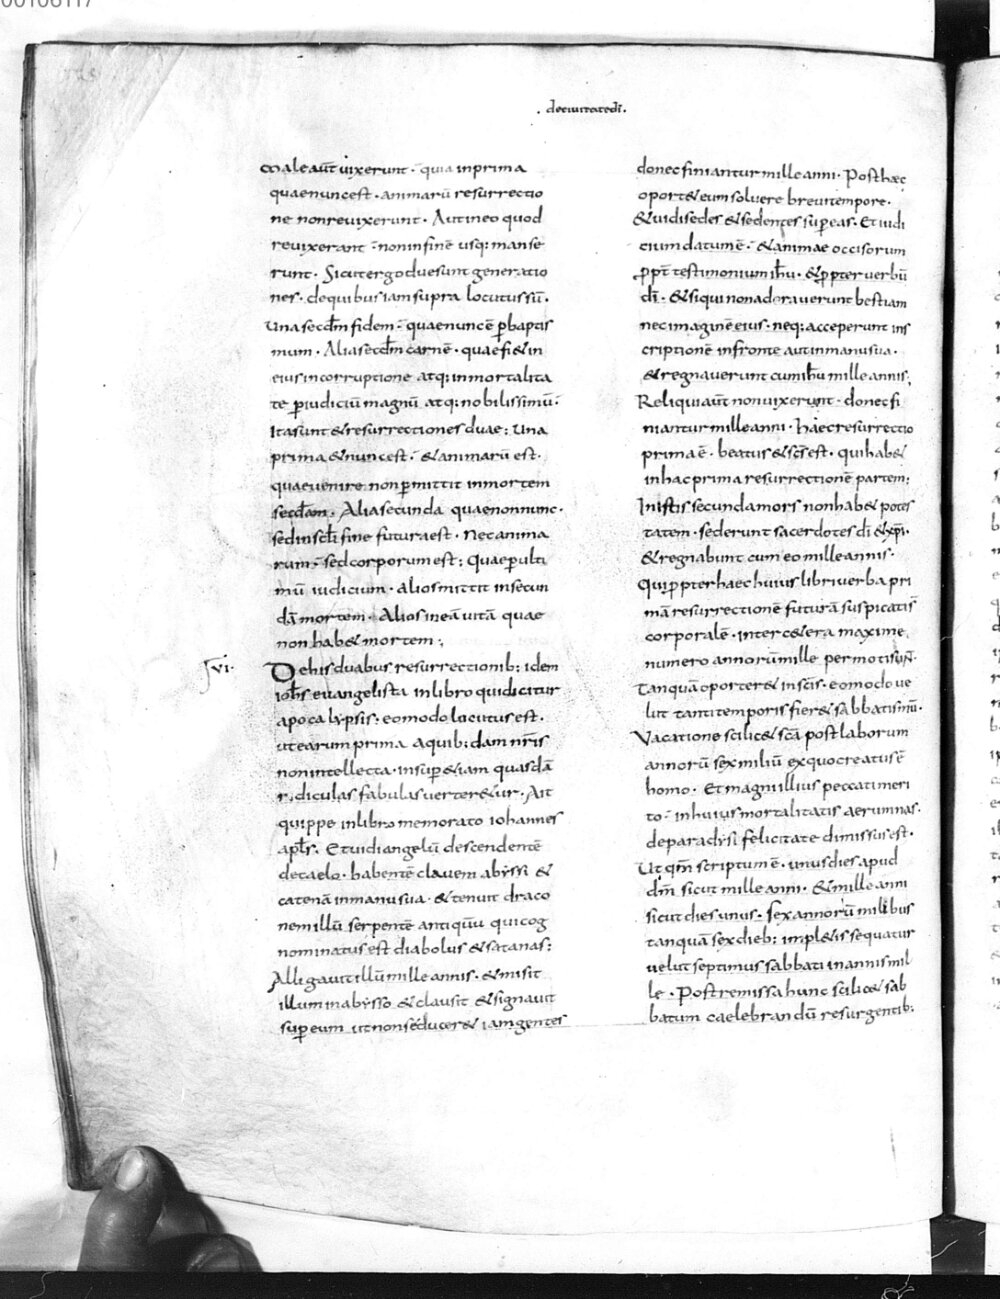 00106117
. deciuitatedi͞.
Maleaut͞ uixerunt · quia inprima
quaenuncest · animaru͞ resurrectio
ne nonreuixerunt · Autineo quod
reuixerant · noninfine͞ usq; manse
runt · Sicutergoduesunt generatio
nes · dequibusiamsupra locutussu͞.
Unasecd͞m fidem · quaenunce͞ ꝑbaptis
mum · Aliasecd͞m carne͞ · quaefi&in
eiusincorruptione atq;inmortalita
te ꝑiudiciu͞ magnu͞ atq;nobilissimu͞ ·
Itasunt&resurrectionesduae; Una
prima&nuncest · &animaru͞ est ·
quaeuenire nonꝑmittit inmortem
secd͞am · Aliasecunda quaenonnunc ·
sedinscl͞i fine futuraest · Necanima
rum · sedcorporumest; Quaeꝑulti
mu͞ iudicium · aliosmittit insecun
da͞ mortem · Aliosinea͞ uita͞ quae
non hab& mortem;
vi ·
Dehisduabus resurrectionib; idem
ioh͞s euangelista inlibro quidicitur
apocalypsis · eomodo locutusest ·
utearum prima aquib;dam nr͞is
nonintellecta · insup&iam quasda͞
ridiculas fabulas uerter&ur · Ait
quippe inlibro memorato iohannes
apl͞s · Etuidiangelu͞ descendente͞
decaelo · habente͞ clauem abyssi &
catena͞ inmanusua · &tenuit draco
nemillu͞ serpente͞ antiqu͞u quicog
nominatusest diabolus &satanas;
Alligauitillu͞ mille annis · &misit
illuminabysso &clausit &signauit
suꝑeum utnonseducer& iamgentes
donecfiniantur mille anni · Posthaec
oport&eumsoluere breuitempore ·
&uidisedes &sedentes suꝑeas · Et iudi
ciumdatume͞ · &animae occisorum
ꝓpt͞ testimonium ih͞u · &ꝓpter uerbu͞
di͞ · &siqui nonadorauerunt bestiam
necimagine͞ eius · neq; acceperunt ins
criptione͞ infronte autinmanusua ·
&regnauerunt cumih͞u mille annis;
Reliquiaut͞ nonuixerunt · donecfi
niantur mille anni · haecresurrectio
prima e͞ · beatus &sc͞sest · quihab&
inhac prima resurrectione͞ partem;
Inistis secundamors nonhab& potes
tatem · sederunt sacerdotes di͞ &xp͞i ·
&regnabunt cum eo mille annis ·
Quiꝓpterhaec huius libriuerba pri
ma͞ resurrectione͞ futura͞ suspicatis͞
corporale͞ · interc&era maxime
numero annoru͞ mille permotisun͞t ·
Tanqua͞ oporter& insc͞is · eomodo ue
lut tantitemporis fier& sabbatismu͞ ·
Vacatione scilic& sc͞a postlaborum
annoru͞ sex miliu͞ exquocreatuse͞
homo · Et magni illius peccatimeri
to · inhuius mortalitatis aerumnas ·
deparadysi felicitate dimissusest ·
Ut qm͞ scriptum e͞ · unusdies apud
dm͞ sicut mille anni · &mille anni
sicut dies unus · sex annoru͞ milibus
tanqua͞ sexdieb; impl&is sequatur
uelut septimus sabbati inannismil
le · Postremissa hunc scilic& sab
batum caelebrandu͞ resurgentib;